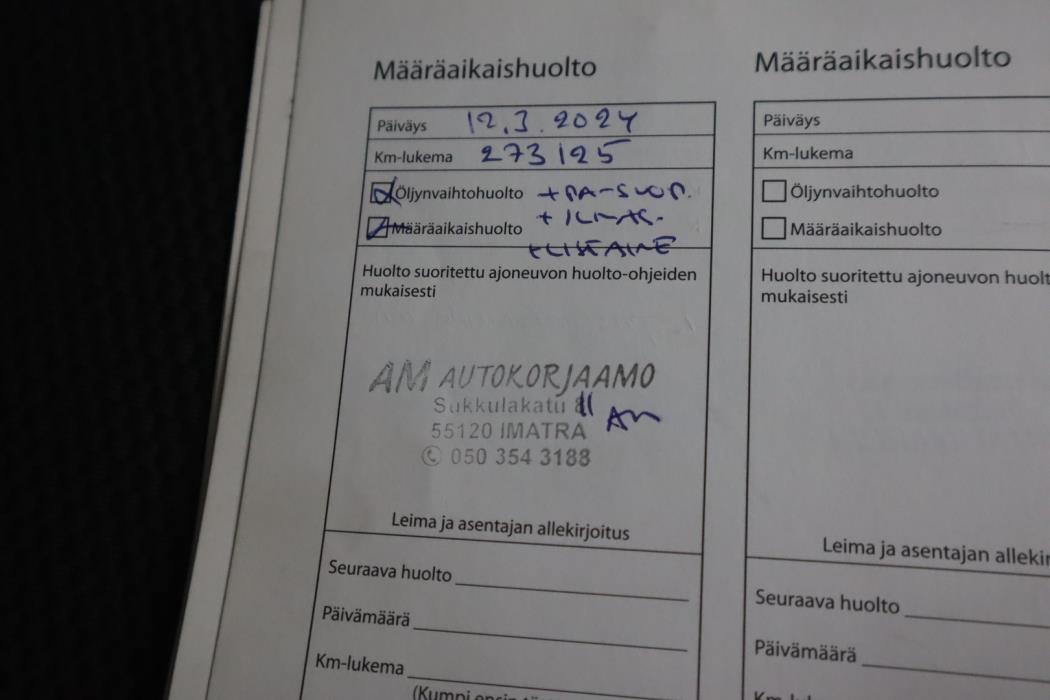 Määräaikaishuolto
Päiväys 12.3.2024
Km-lukema 273125
Öljynvaihtohuolto + RA-SUOD.
Määräaikaishuolto + ILMAS.
+LISÄAINE
Huolto suoritettu ajoneuvon huolto-ohjeiden
mukaisesti
AM AUTOKORJAAMO
Sukkulakatu 11
55120 IMATRA
050 354 3188
Leima ja asentajan allekirjoitus
Seuraava huolto
Päivämäärä
Km-lukema
(Kumpi ensin
Määräaikaishuolto
Päiväys
Km-lukema
Öljynvaihtohuolto
Määräaikaishuolto
Huolto suoritettu ajoneuvon
mukaisesti
Leima ja asentajan
Seuraava huolto
Päivämäärä